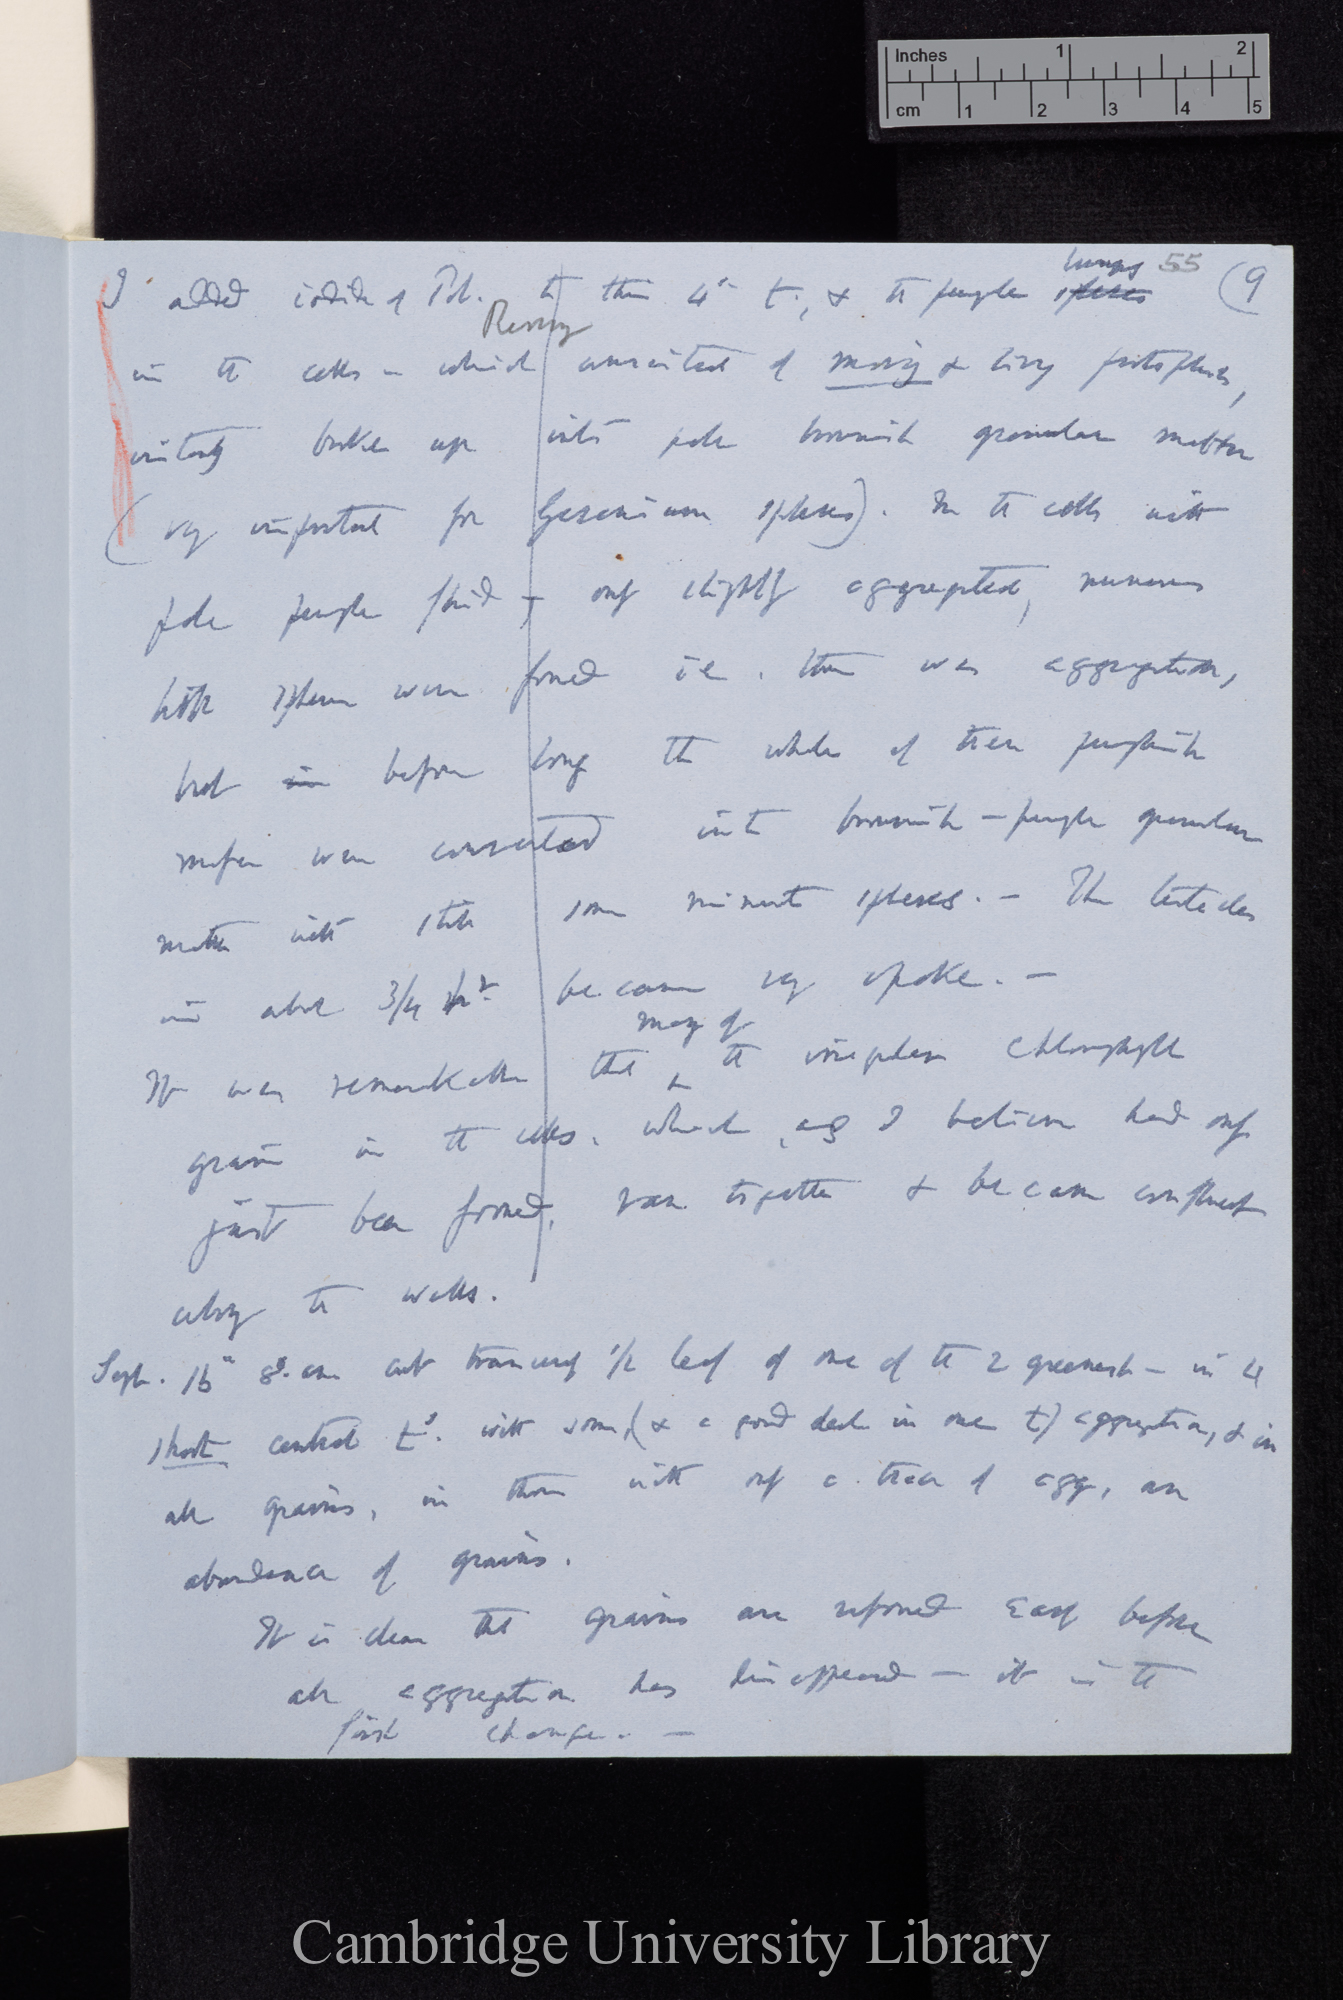 Inches 1 2
cm 1 2 3 4 5
55 (9
I added iodide of Pot. to this 4th t., & the purple spheres lumps
Penny
in the cells – which consisted of moving & living protoplasm,
instantly broke up into pale brownish granular matter
(very important for Geranium spheres). In the cells with
pale purple fluid, only slightly aggregated, numerous
little spheres were formed i.e. there was aggregation,
but in before long the whole of these purplish
were converted into brownish-purple granular
matter with still some minute spheres. – The tentacles
in about 3/4 hr. became very opake. –
many of
It was remarkable that ^ the irregular chlorophyll
grains in the cells, which, as I believe had only
just been formed, ran together & became confluent
along the walls.
Sept. 16th 8° am cut transversely 1/2 leaf of one of the 2 greenest – in 4
short central ts. with some (& a good deal in one t) aggregation, & in
all grains, in those with only a trace of agg, an
abundance of grains.
It is clear that grains are reformed before
all aggregation has disappeared – it is the
first change. –
Cambridge University Library